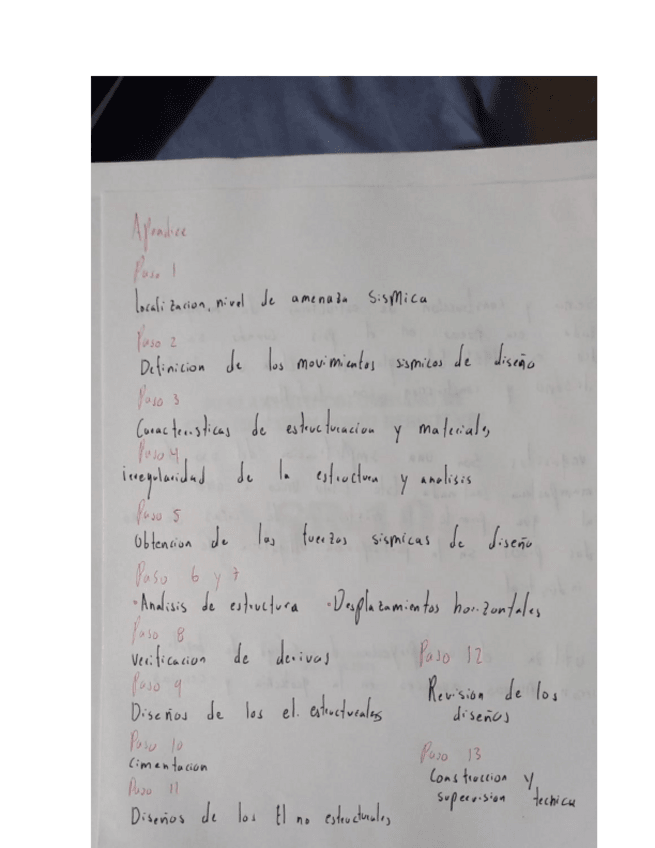 Apendice
Paso 1
localizacion, nivel de amenaza sismica
Paso 2
Definicion de los movimientos sismicos de diseño
Paso 3
Caracteristicas de estructuracion y materiales
Paso 4
irregularidad de la estructura y analisis
Paso 5
Obtencion de las fuerzas sismicas de diseño
Paso 6 y 7
• Analisis de estructura • Desplazamientos horizontales
Paso 8
Verificacion de derivas
Paso 9
Diseños de los el. estructurales
Paso 10
Cimentacion
Paso 11
Diseños de los El no estructurales
Paso 12
Revision de los
diseños
Paso 13
Construccion y
supervision tecnica